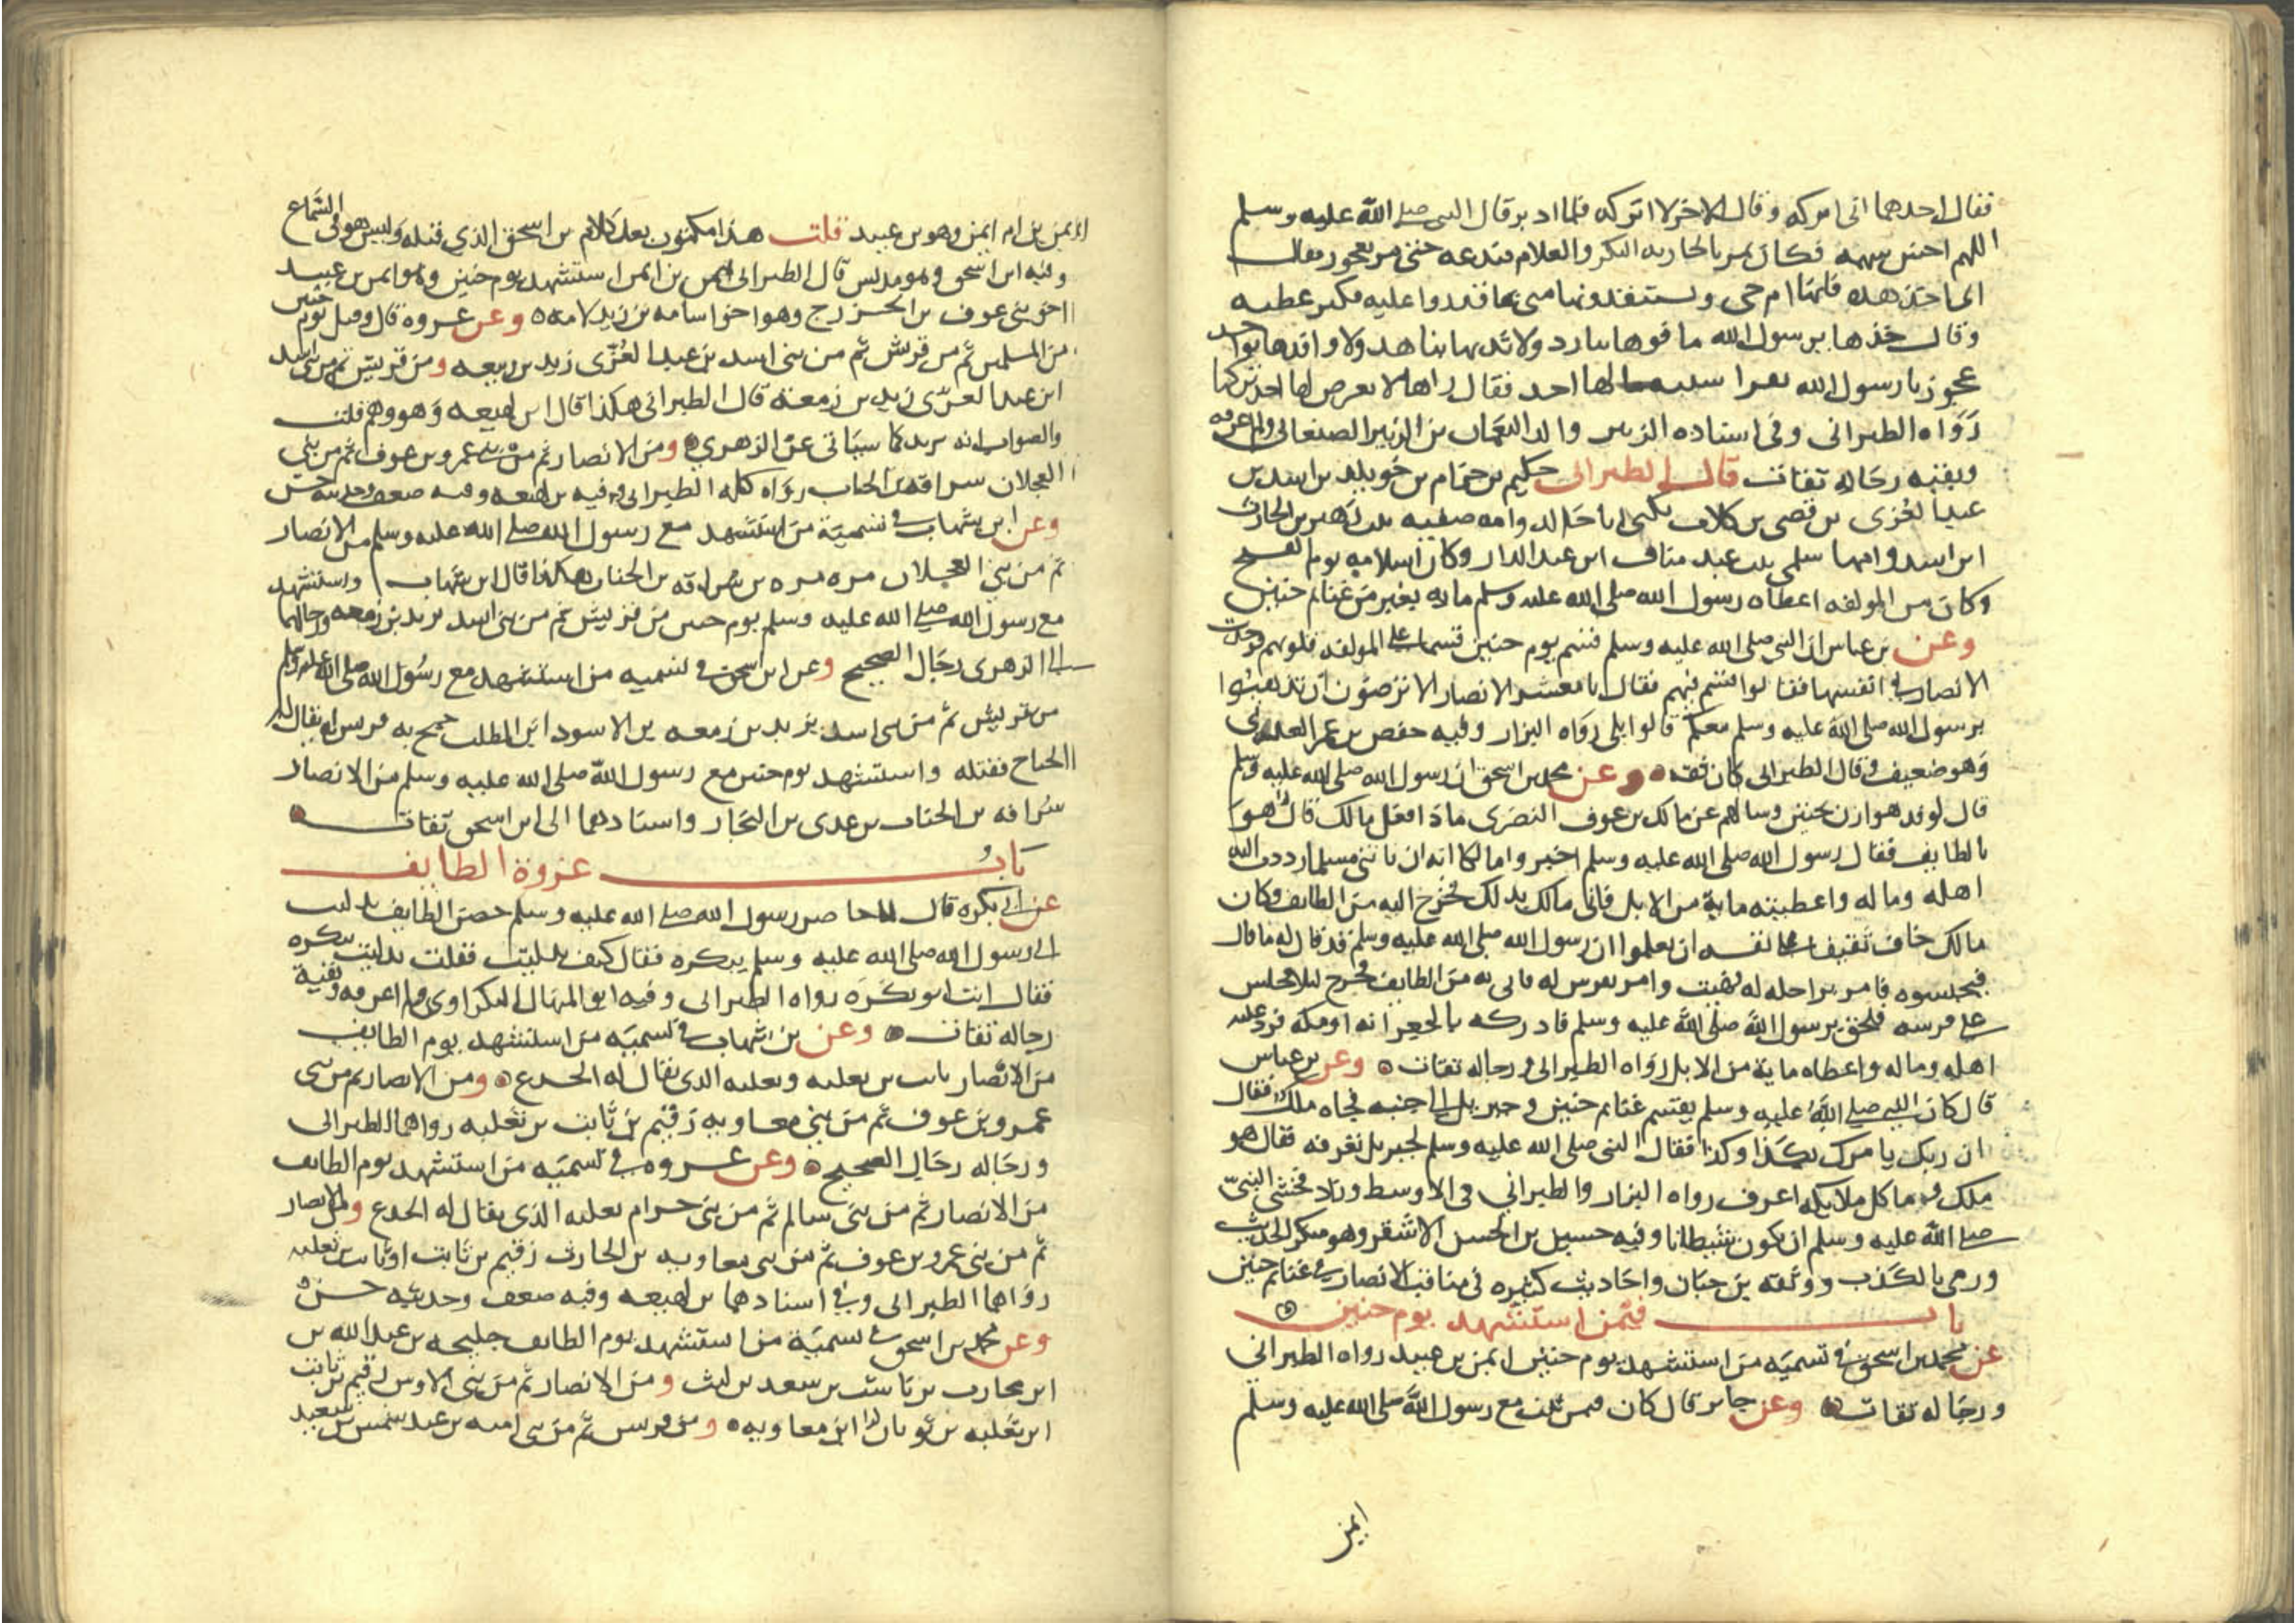 فقال احدهما انى اتركه وقال الاخر لا اتركه فلما ادبر قال النبى صلى الله عليه وسلم
اللهم اخس سهمه فكان يمر بالجاريه البكر والغلام فيدعه حتى مر بعجوز فقال
انى اخذ هذه فانها ام حى وستفدونها منى بما قدروا عليه فكبر عطيه
وقال خذها يرسول الله ما فوها ببارد ولا ثديها بناهد ولا وافدها بواجد
عجوز يا رسول الله بترا سبيه ما لها احد فقال راها لا يعرض لها احد تركها
رواه الطبرانى وفى اسناده الزبير والد النعمان بن الزبير الصنعانى ولم اعرفه
وبقية رجاله ثقات قال الطبرانى حكيم بن حزام بن خويلد بن اسد بن
عبد العزى بن قصى بن كلاب يكنى ابا خالد وامه صفيه بنت زهير بن الحارث
ابن اسد وامها سلمى بنت عبد مناف ابن عبد الدار وكان اسلامه يوم الفتح
وكان من المولفه اعطاه رسول الله صلى الله عليه وسلم مايه بعير من غنايم حنين
وعن بن عباس ان النبى صلى الله عليه وسلم قسم يوم حنين قسما على المولفه قلوبهم فوجدت
الانصار فى انفسها فقالوا قسم فيهم فقال يا معشر الانصار الا ترضون ان تذهبوا
برسول الله صلى الله عليه وسلم معكم قالوا بلى رواه البزار وفيه حفص بن عمر العدنى
وهو ضعيف وقال الطبرانى كان ثقه وعن محمد بن اسحق ان رسول الله صلى الله عليه وسلم
قال لوفد هوازن بحنين وسالهم عن مالك بن عوف النصرى ماذا فعل مالك قال هو
بالطايف فقال رسول الله صلى الله عليه وسلم اخبروا مالكا انه ان ياتنى مسلما رددت اليه
اهله وماله واعطيته ماية من الابل فاتى مالك بذلك فخرج اليه من الطايف وكان
مالك خاف ثقيف على نفسه ان يعلموا ان رسول الله صلى الله عليه وسلم قد قال له ما قال
فيحبسوه فامر براحله له فهيت وامر بفرس له فاتى به من الطايف فخرج ليلا فجلس
على فرسه فلحق برسول الله صلى الله عليه وسلم فادركه بالجعرانه او مكة فرد عليه
اهله وماله واعطاه ماية من الابل رواه الطبرانى ورجاله ثقات وعن بن عباس
قال كان النبى صلى الله عليه وسلم يقسم غنايم حنين وجبريل الى جنبه فجاه ملك فقال
ان ربك يامرك بكذا وكذا فقال النبى صلى الله عليه وسلم لجبريل تعرفه فقال هو
ملك وما كل ملايكه اعرف رواه البزار والطبرانى فى الاوسط وزاد فخشى النبى
صلى الله عليه وسلم ان يكون شيطانا وفيه حسين بن الحسن الاشقر وهو منكر الحديث
ورمى بالكذب ووثقه بن حبان واحاديث كثيره فى مناقب الانصار فى غنايم حنين
باب فيمن استشهد يوم حنين
عن محمد بن اسحق فى تسميه من استشهد يوم حنين ايمن بن عبيد رواه الطبرانى
ورجاله ثقات وعن جابر قال كان فيمن ثبت مع رسول الله صلى الله عليه وسلم
ايمن
ايمن بن ام ايمن وهو بن عبيد قلت هذا مكتوب بعد كلام بن اسحق الذى قبله وليس هو فى السماع
وفيه ابن اسحق وهو مدلس قال الطبرانى ايمن بن ام ايمن استشهد يوم حنين وهو ايمن بن عبيد
اخو بنى عوف بن الخزرج وهو اخو اسامه بن زيد لامه وعن عروه قال وقتل يوم حنين
من المسلمين ثم من قريش ثم من بنى اسد بن عبد العزى زيد بن ربيعه ومن قريش ثم من بنى اسد
ابن عبد العزى زيد بن زمعة قال الطبرانى هكذا قال ابن لهيعه وهو وهم قلت
والصواب انه يزيد كما سياتى عن الزهرى ومن الانصار ثم من بنى عمرو بن عوف ثم من بنى
العجلان سراقه بن الحباب رواه كله الطبرانى وفيه بن لهيعه وفيه ضعف وحديثه حسن
وعن ابن شهاب فى تسمية من استشهد مع رسول الله صلى الله عليه وسلم من الانصار
ثم من بنى العجلان مره بن سراقه بن الحباب هكذا قال ابن شهاب واستشهد
مع رسول الله صلى الله عليه وسلم يوم حنين من قريش ثم من بنى اسد يزيد بن زمعه ورجالهما
الى الزهرى رجال الصحيح وعن ابن اسحق فى تسميه من استشهد مع رسول الله صلى الله عليه وسلم
من قريش ثم من بنى اسد يزيد بن زمعه بن الاسود ابن المطلب جمح به فرس له يقال له
الجناح فقتله واستشهد يوم حنين مع رسول الله صلى الله عليه وسلم من الانصار
سراقه بن الحباب بن عدى بن النجار واسنادهما الى ابن اسحق ثقات
باب غزوة الطايف
عن ابى بكره قال لما حاصر رسول الله صلى الله عليه وسلم حصن الطايف تدليت
الى رسول الله صلى الله عليه وسلم ببكره فقال كيف تدليت فقلت تدليت ببكره
فقال انت ابو بكره رواه الطبرانى وفيه ابو المنهال البكراوى ولم اعرفه وبقية
رجاله ثقات وعن بن شهاب فى تسميه من استشهد يوم الطايف
من الانصار ثابت بن ثعلبه وثعلبه الذى يقال له الجدع ومن الانصار ثم من بنى
عمرو بن عوف ثم من بنى معاويه رقيم بن ثابت بن ثعلبه رواهما الطبرانى
ورجاله رجال الصحيح وعن عروه فى تسميه من استشهد يوم الطايف
من الانصار ثم من بنى سالم ثم من بنى حرام ثعلبه الذى يقال له الجدع ومن الانصار
ثم من بنى عمرو بن عوف ثم من بنى معاويه بن الحارث رقيم بن ثابت او ثابت بن ثعلبه
رواهما الطبرانى وفى اسنادهما بن لهيعه وفيه ضعف وحديثه حسن
وعن محمد بن اسحق فى تسمية من استشهد يوم الطايف جليحه بن عبد الله بن
ابن محارب بن ناشب بن سعد بن ليث ومن الانصار ثم من بنى الاوس رقيم بن ثابت
ابن ثعلبه بن ثوبان ابن معاويه ومن قريش ثم من بنى اميه بن عبد شمس بن سعيد